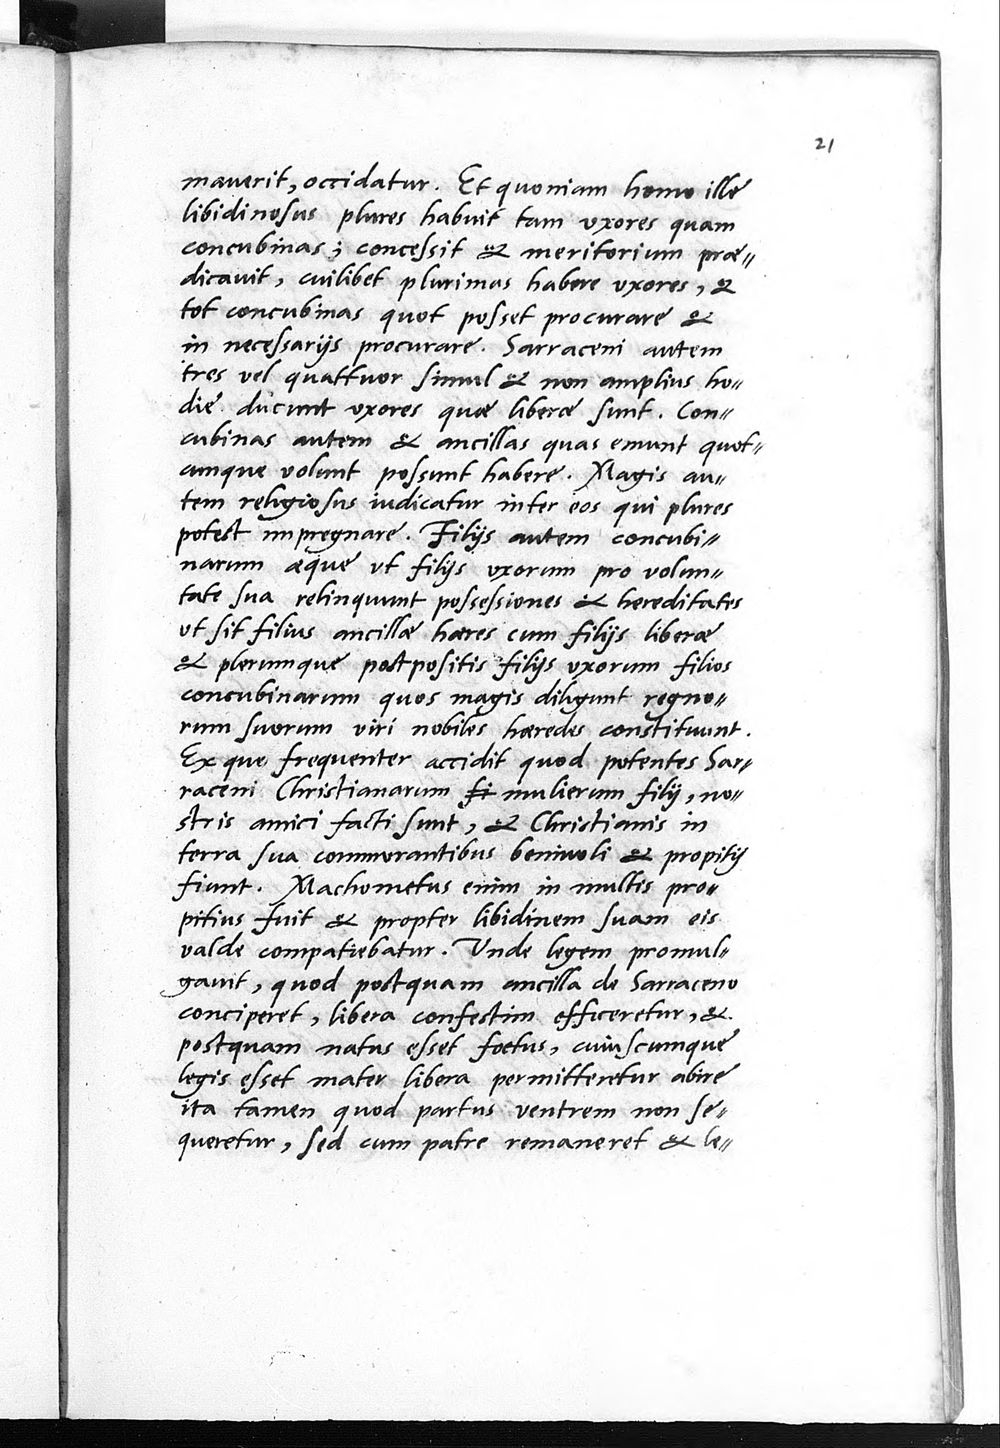 21
mauerit, occidatur. Et quoniam homo ille
libidinosus plures habuit tam vxores quam
concubinas; concessit & meritorium præ„
dicauit, cuilibet plurimas habere vxores, &
tot concubinas quot posset procurare &
in necessarijs procurare. Sarraceni autem
tres vel quattuor simul & non amplius ho„
die ducunt vxores quæ liberæ sunt. Con„
cubinas autem & ancillas quas emunt quot„
cunque volunt possunt habere. Magis au„
tem religiosus iudicatur inter eos qui plures
potest impregnare. Filijs autem concubi„
narum æque vt filijs vxorum pro volun„
tate sua relinquunt possessiones & hereditates
vt sit filius ancillæ hæres cum filijs liberæ
& plerumque postpositis filijs vxorum filios
concubinarum quos magis diligunt regno„
rum suorum viri nobiles hæredes constituunt.
Ex quo frequenter accidit quod potentes Sar„
raceni Christianarum fi mulierum filij, no„
stris amici facti sunt, & Christianis in
terra sua commorantibus beniuoli & propitij
fiunt. Machometus enim in multis pro„
pitius fuit & propter libidinem suam eis
valde compatiebatur. Unde legem promul„
gauit, quod postquam ancilla de Sarraceno
conciperet, libera confestim efficeretur, &
postquam natus esset foetus, cuiuscumque
legis esset mater libera permitteretur abire
ita tamen quod partus ventrem non se„
queretur, sed cum patre remaneret & le„